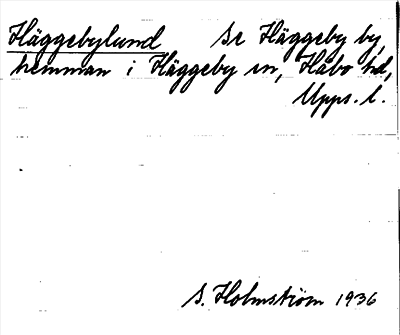 Häggebylund se Häggeby by,
hemman i Häggeby sn, Håbo hd,
Upps. l.
S. Holmström 1936